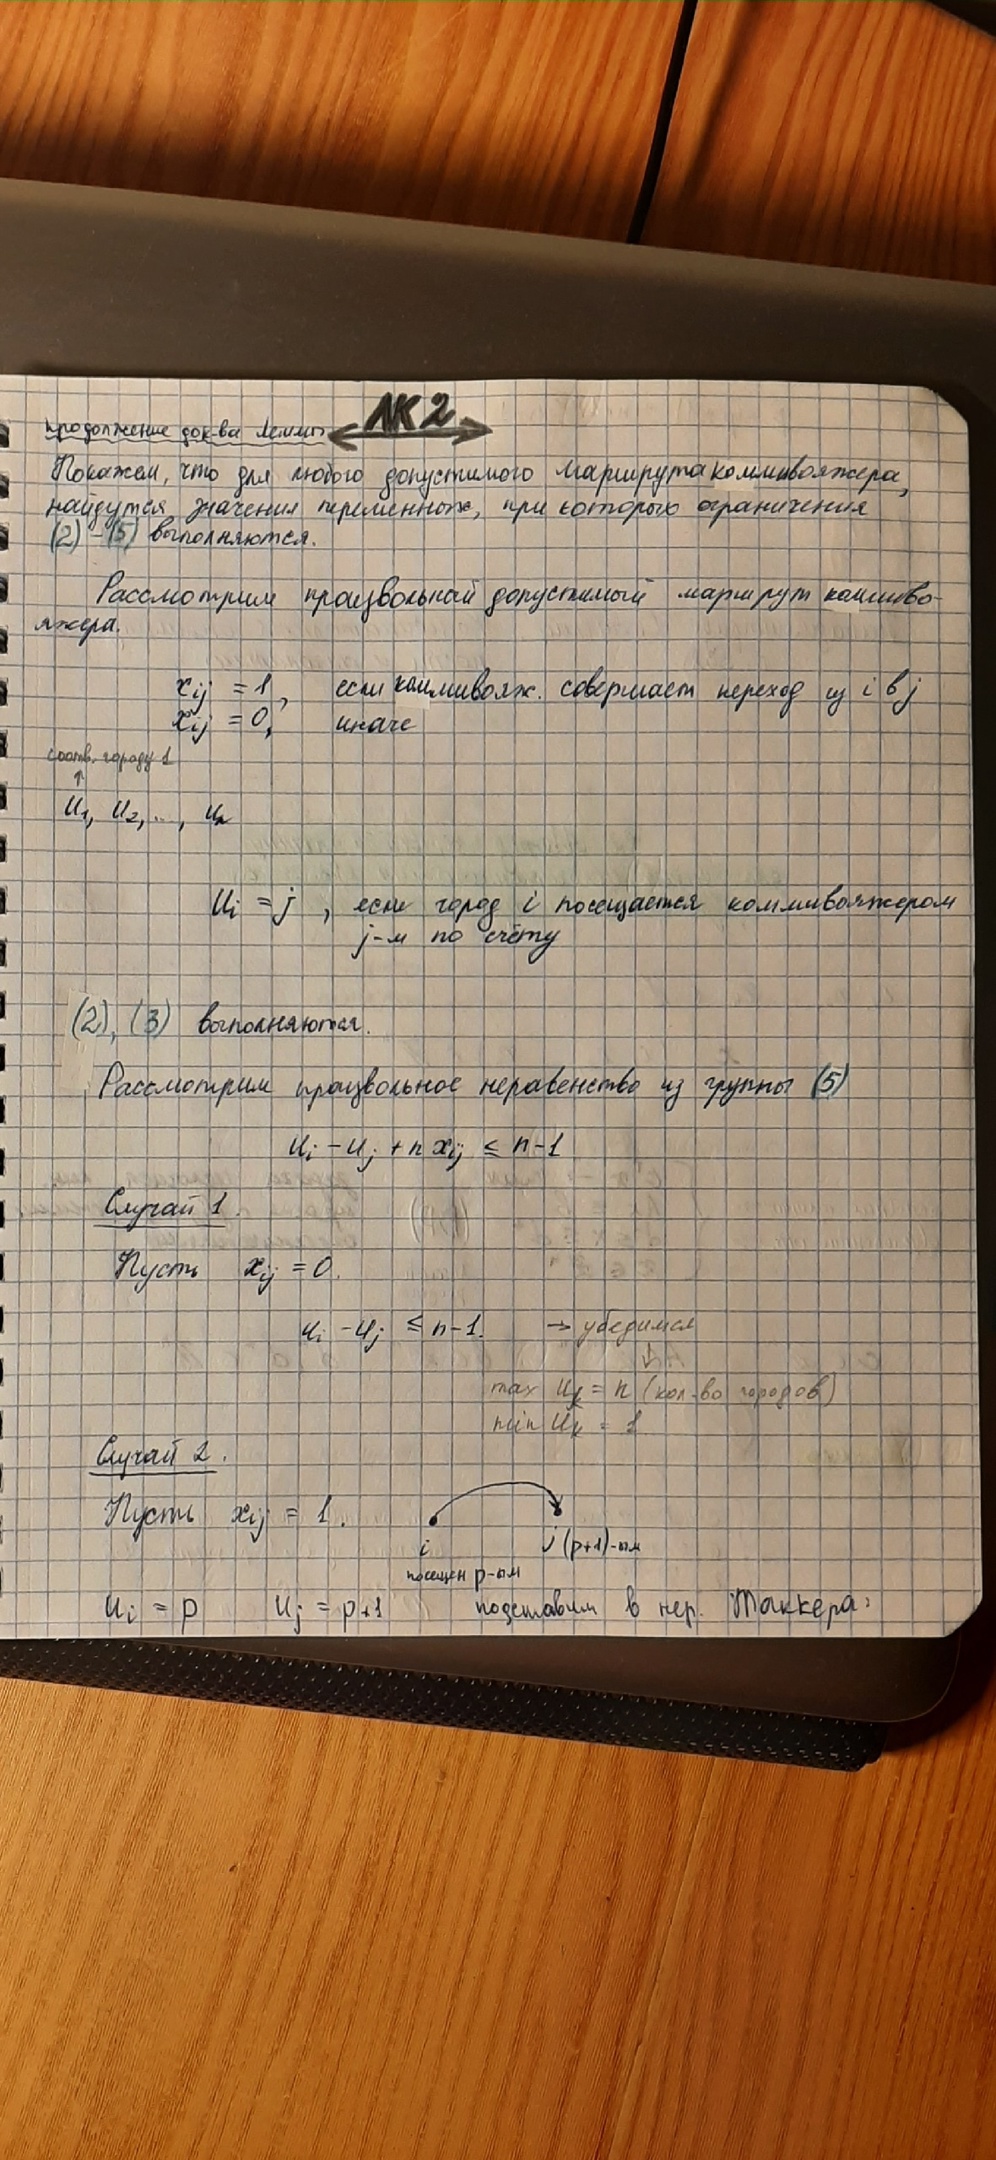 ЛК 2
продолжение док-ва Леммы
Покажем, что для любого допустимого маршрута коммивояжера,
найдутся значения переменных, при которых ограничения
(2) - (5) выполняются.
Рассмотрим произвольный допустимый маршрут коммиво-
яжера.
x_ij = 1, если коммивояж. совершает переход из i в j
x_ij = 0, иначе
соотв. городу 1
↑
u_1, u_2, ..., u_n
u_i = j, если город i посещается коммивояжером
j-м по счёту
(2), (3) выполняются.
Рассмотрим произвольное неравенство из группы (5)
u_i - u_j + n x_ij ≤ n-1
Случай 1.
Пусть x_ij = 0.
u_i - u_j ≤ n-1. → убедимся
↓
max u_k = n (кол-во городов)
min u_k = 1
Случай 2.
Пусть x_ij = 1.
i j (p+1)-ым
посещен p-ым
u_i = p u_j = p+1 подставим в нер. Таккера: